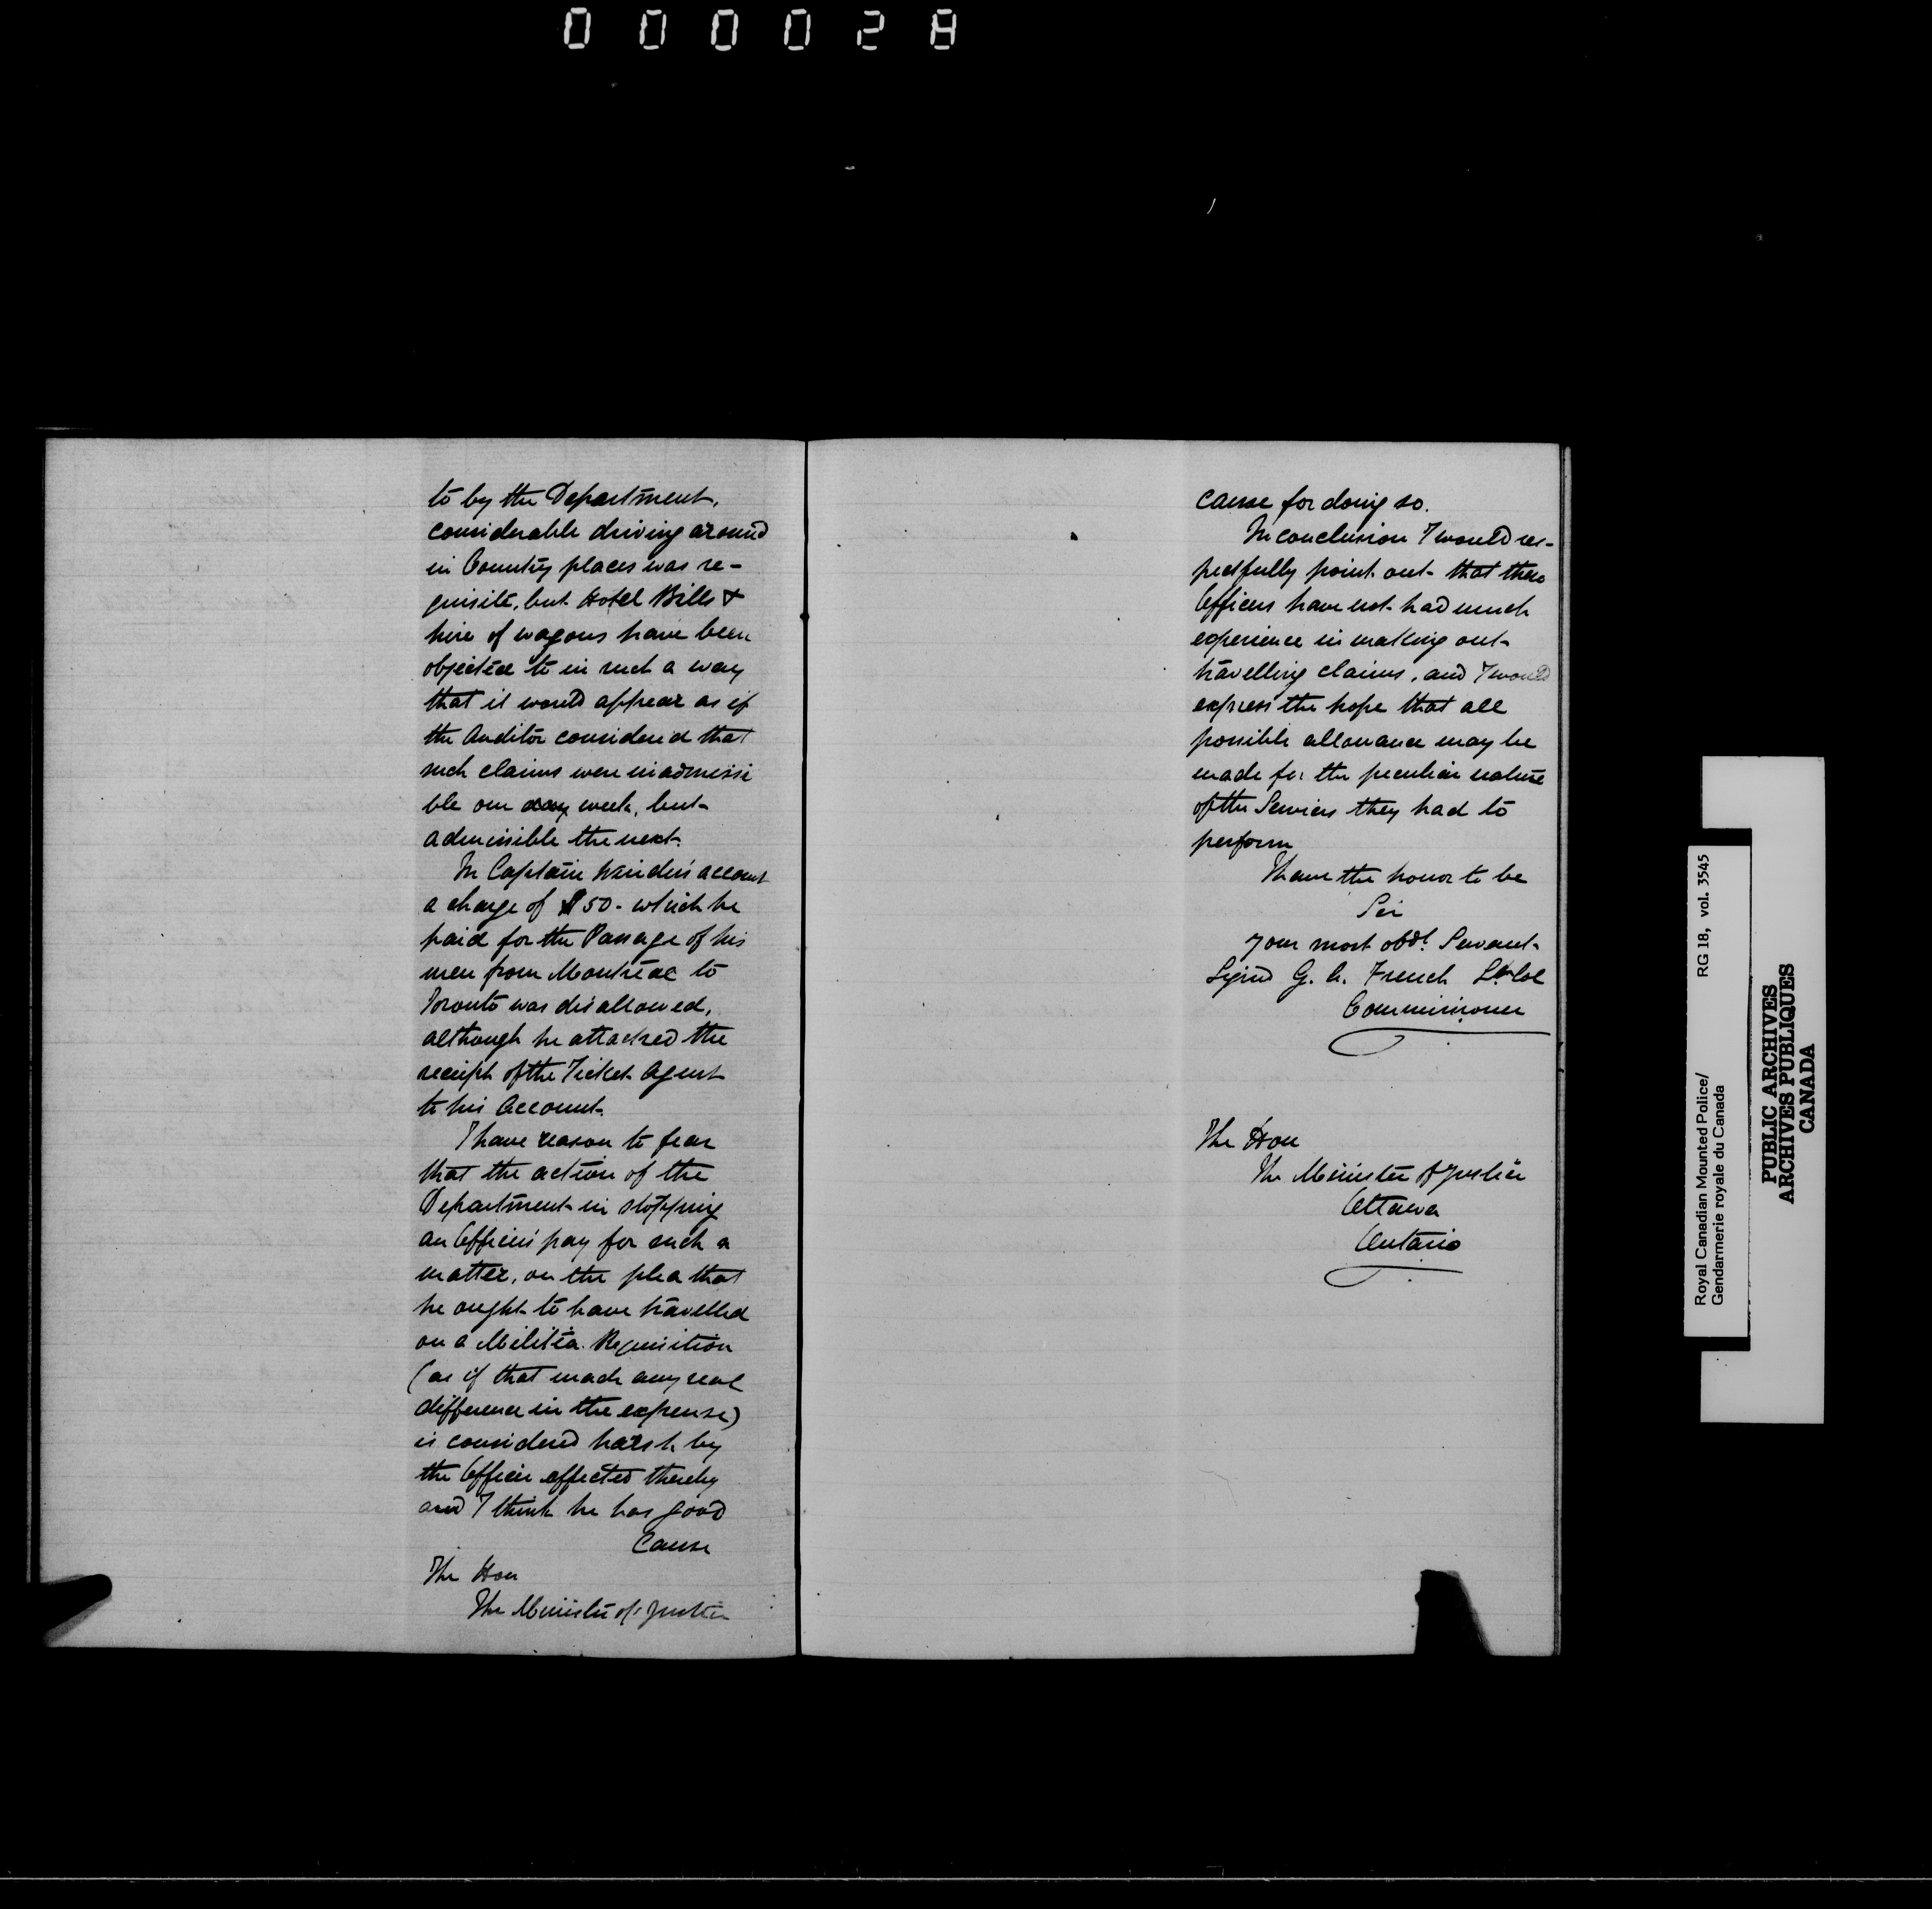 000028
to by the Department,
considerable driving around
in Country places was re-
quisite, but Hotel Bills &
hire of wagons have been
objected to in such a way
that it would appear as if
the Auditor considered that
such claims were inadmissi
ble one day week, but
admissible the next.
In Captain Winder's account
a charge of $50 - which he
paid for the Passage of his
men from Montreal to
Toronto was disallowed,
although he attached the
receipt of the Ticket Agent
to his Account.
I have reason to fear
that the action of the
Department in stopping
an Officer's pay for such a
matter, on the plea that
he ought to have travelled
on a Militia Requisition
(as if that made any real
difference in the expense)
is considered harsh by
the Officer affected thereby
and I think he has good
Cause
The Hon
The Minister of Justice
cause for doing so.
In conclusion I would res-
pectfully point out that these
Officers have not had much
experience in making out
travelling claims, and I would
express the hope that all
possible allowance may be
made for the peculiar nature
of the Services they had to
perform
I have the honor to be
Sir
your most obdt. Servant
Signed G. A. French Lt. Col
Commissioner
The Hon
The Minister of Justice
Ottawa
Ontario
Royal Canadian Mounted Police/
Gendarmerie royale du Canada
RG 18, vol. 3545
PUBLIC ARCHIVES
ARCHIVES PUBLIQUES
CANADA